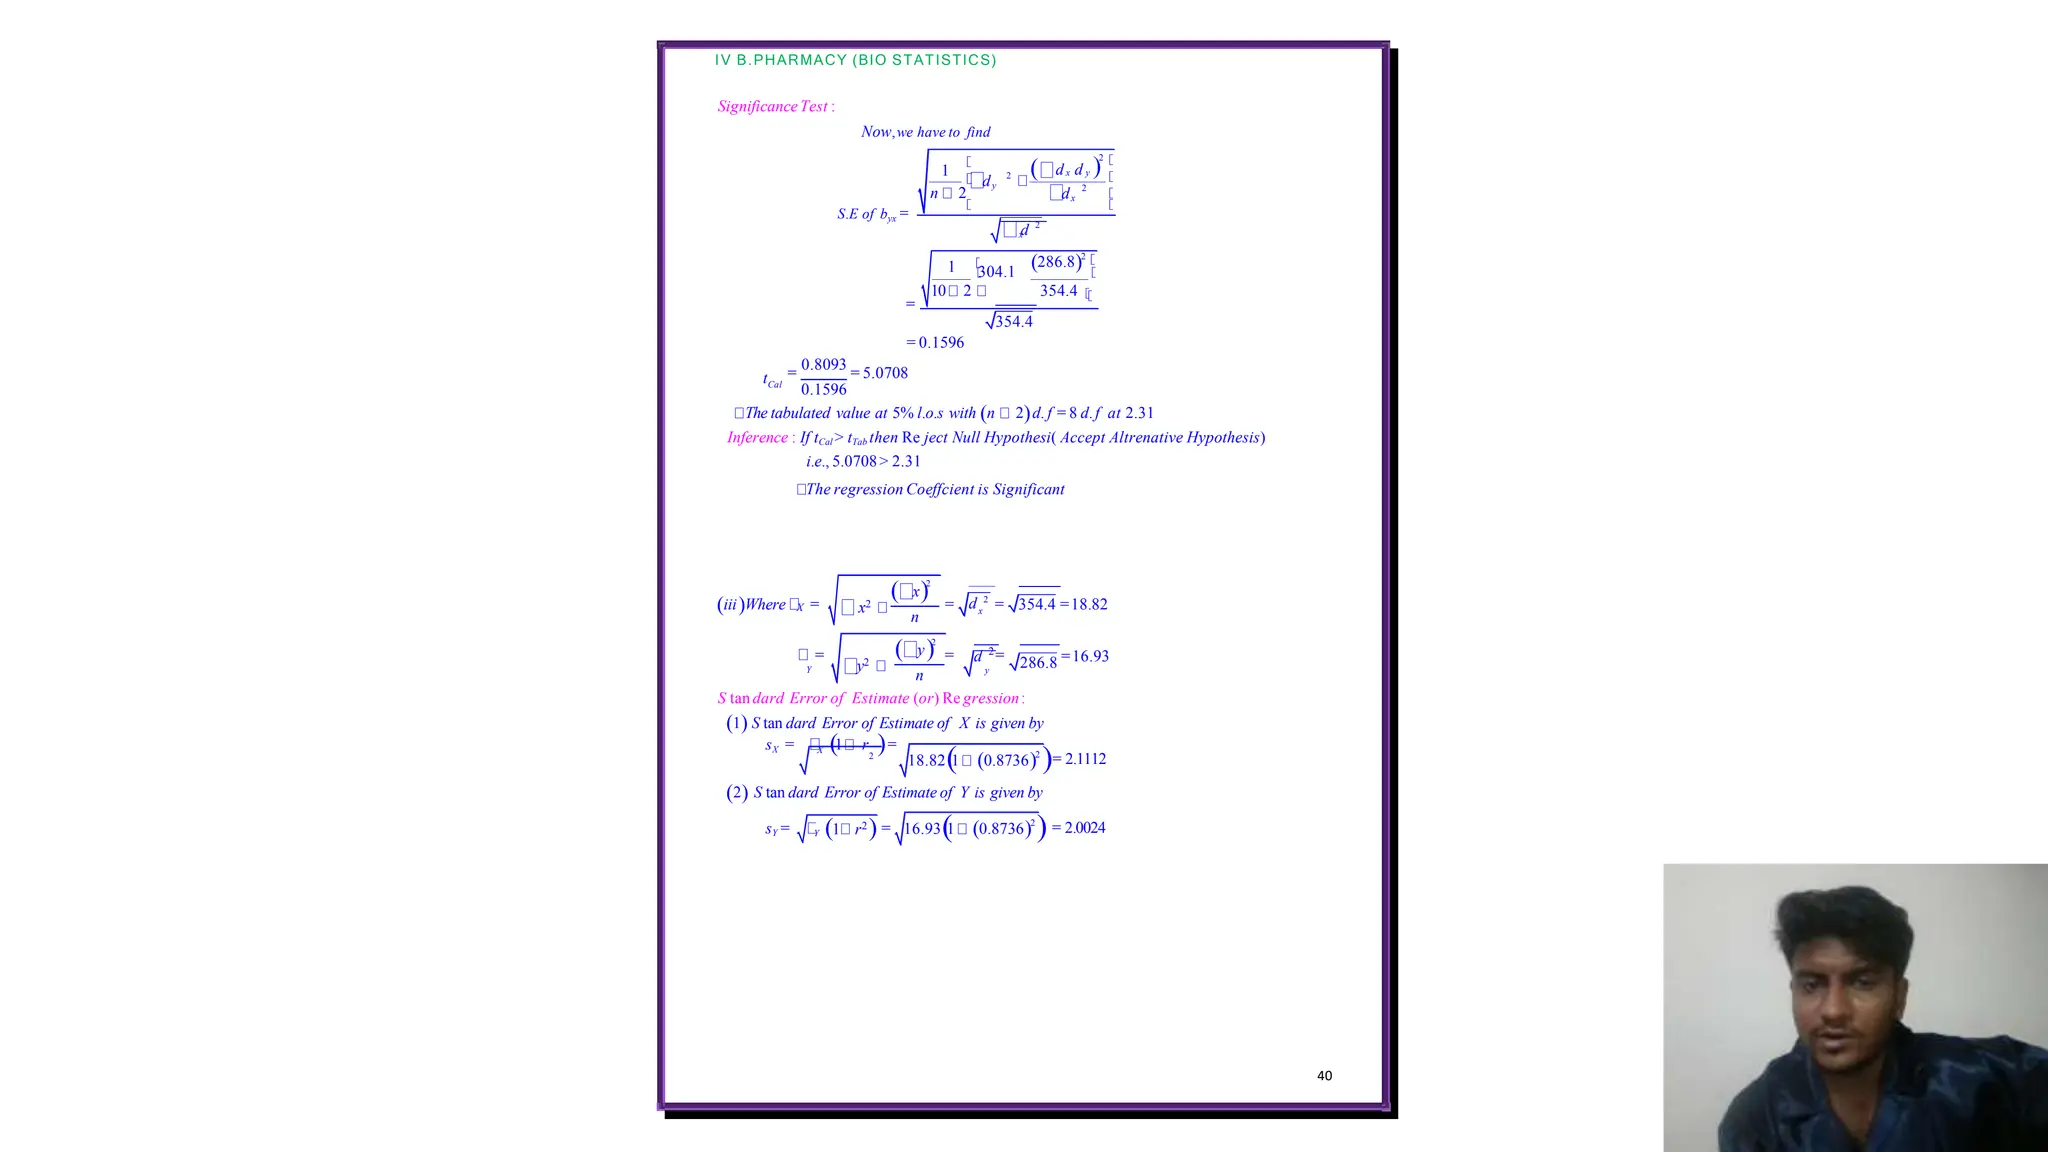 IV B.PHARMACY (BIO STATISTICS)
Significance Test :
Now, we have to find
S.E of b_yx = √( 1/(n □ 2) [ □d_y² □ (□d_x d_y)² / □d_x² ] ) / √(□d_x²)
= √( 1/(10 □ 2) [ 304.1 □ (286.8)² / 354.4 ] ) / √354.4
= 0.1596
t_Cal = 0.8093 / 0.1596 = 5.0708
□The tabulated value at 5% l.o.s with (n □ 2) d.f = 8 d.f at 2.31
Inference : If t_Cal > t_Tab then Re ject Null Hypothesi( Accept Altrenative Hypothesis)
i.e., 5.0708 > 2.31
□The regression Coeffcient is Significant
(iii) Where □_X = √( □x² □ (□x)² / n ) = √(d_x²) = √354.4 = 18.82
□_Y = √( □y² □ (□y)² / n ) = √(d_y²) = √286.8 = 16.93
S tan dard Error of Estimate (or) Re gression :
(1) S tan dard Error of Estimate of X is given by
s_X = √( □_X (1 □ r²) ) = √( 18.82 (1 □ (0.8736)²) ) = 2.1112
(2) S tan dard Error of Estimate of Y is given by
s_Y = √( □_Y (1 □ r²) ) = √( 16.93 (1 □ (0.8736)²) ) = 2.0024
40